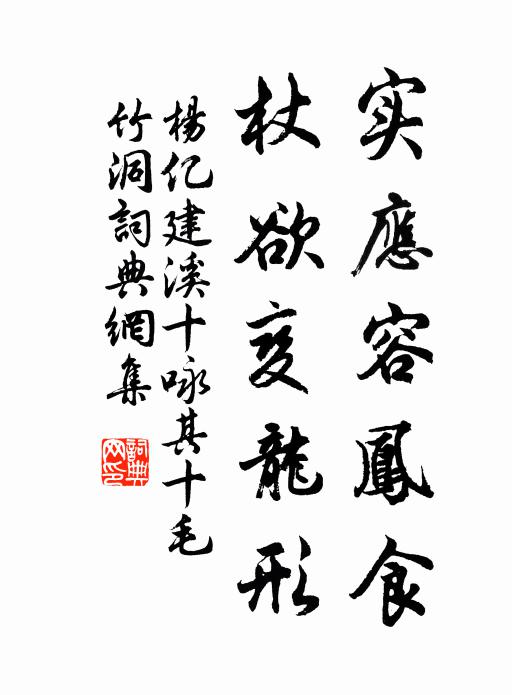 实應容鳳食
杖欲变龍形
楊亿建溪十咏其十毛
竹洞詞典網集
詞典网印